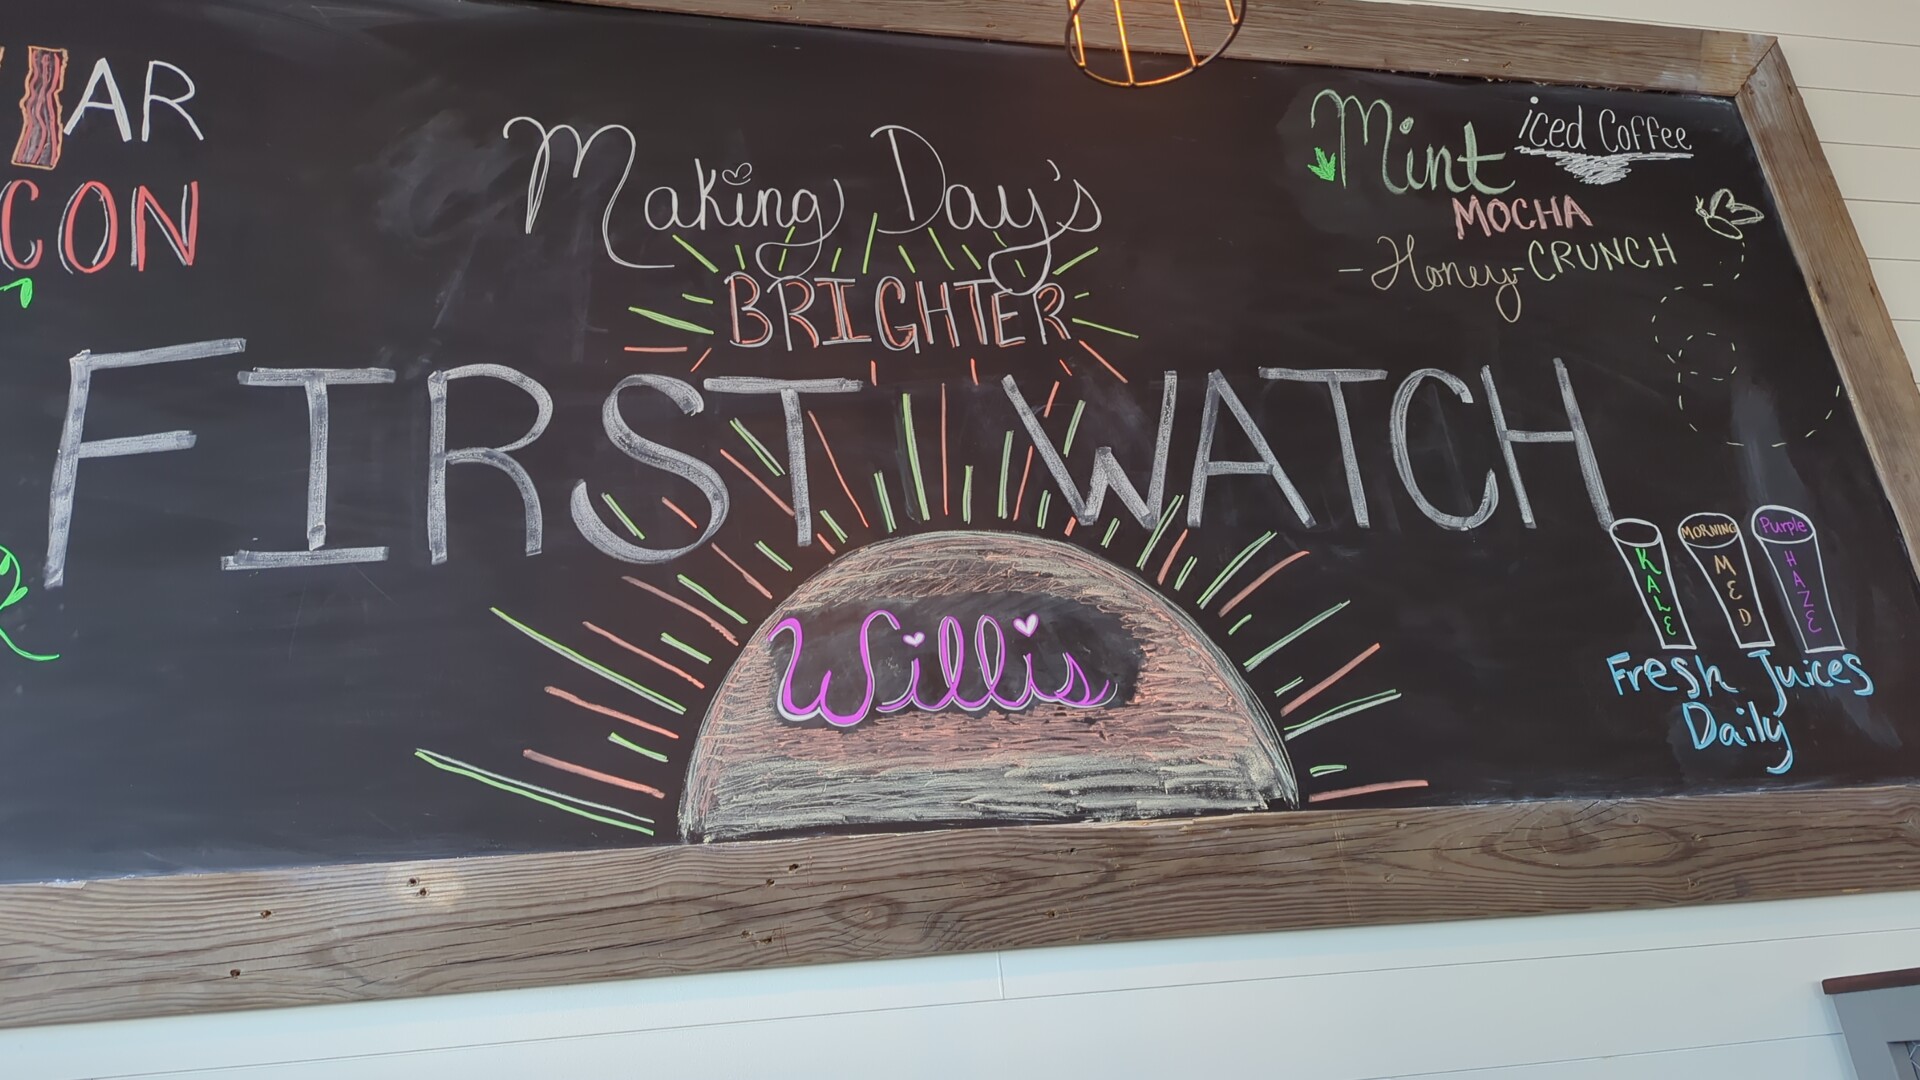 AR
CON
Making Day's
BRIGHTER
FIRST WATCH
Willis
Mint iced Coffee
MOCHA
- Honey-CRUNCH
KALE
MORNING MED
Purple HAZE
Fresh Juices
Daily